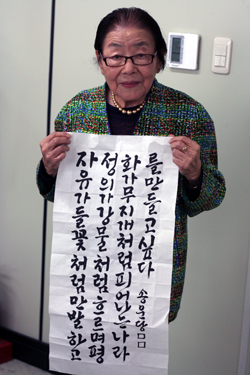 자유가들꽃처럼만발하고
정의가강물처럼흐르며평
화가무지개처럼피어나는나라
를만들고싶다
송운당□□